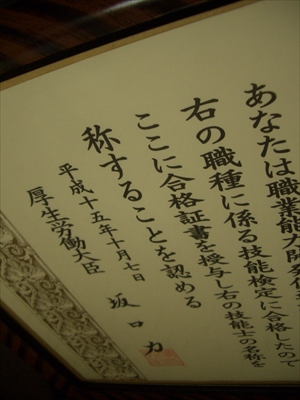 あなたは職業能力開発促
右の職種に係る技能検定に合格したので
ここに合格証書を授与し右の技能士の名称を
称することを認める
平成十五年十月七日
厚生労働大臣 坂口力